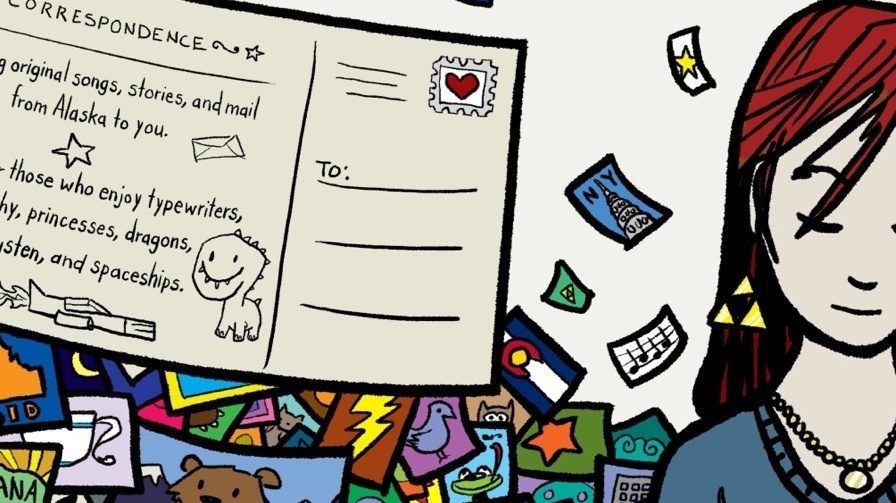 CORRESPONDENCE
original songs, stories, and mail
from Alaska to you.
those who enjoy typewriters,
princesses, dragons,
and spaceships.
To:
NY